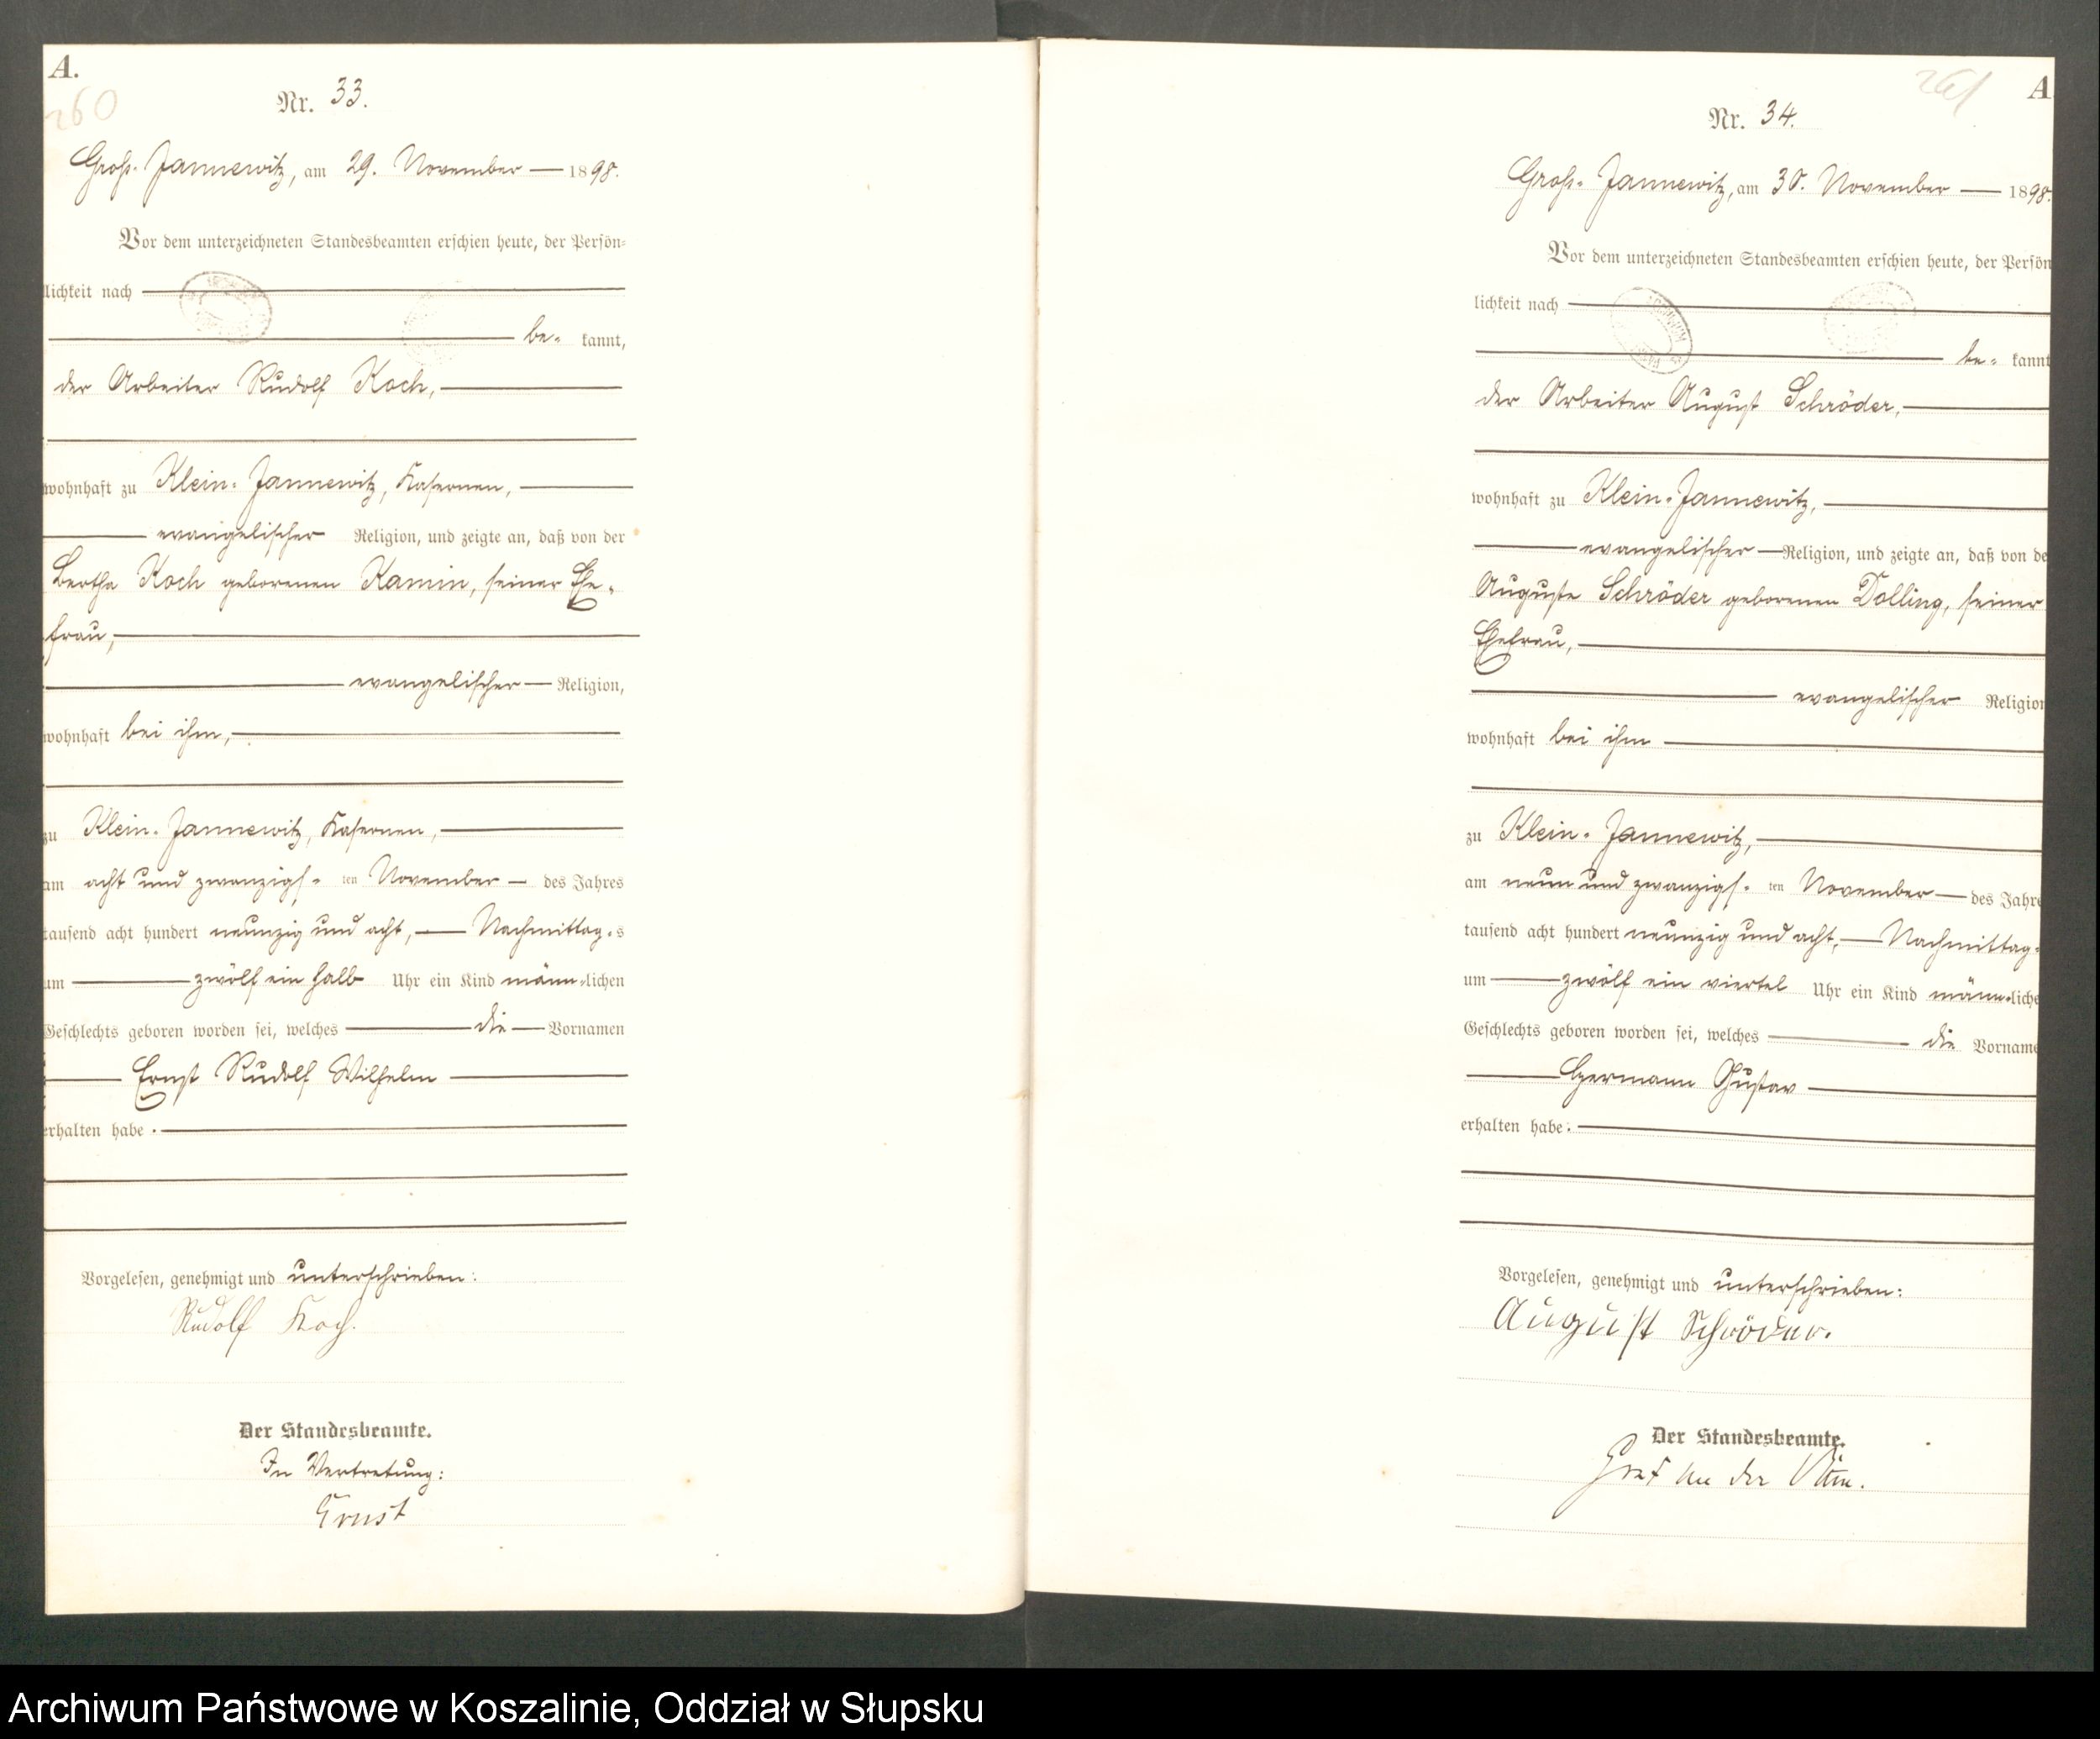 A.
260
Nr. 33.
Groß-Jannewitz, am 29. November 1898.
Vor dem unterzeichneten Standesbeamten erschien heute, der Persön-
lichkeit nach
be- kannt,
der Arbeiter Rudolf Koch,
wohnhaft zu Klein-Jannewitz, Kasernen,
evangelischer Religion, und zeigte an, daß von der
Bertha Koch geborenen Kamin, seiner Ehe-
frau,
evangelischer Religion,
wohnhaft bei ihm,
zu Klein-Jannewitz, Kasernen,
am acht und zwanzigs-ten November des Jahres
tausend acht hundert neunzig und acht, Nachmittag-s
um zwölf ein halb Uhr ein Kind männ-lichen
Geschlechts geboren worden sei, welches die Vornamen
Ernst Rudolf Wilhelm
erhalten habe.
Vorgelesen, genehmigt und unterschrieben:
Rudolf Koch.
Der Standesbeamte.
In Vertretung:
Ernst
A
261
Nr. 34.
Groß-Jannewitz, am 30. November 1898.
Vor dem unterzeichneten Standesbeamten erschien heute, der Persön
lichkeit nach
be- kannt
der Arbeiter August Schröder,
wohnhaft zu Klein-Jannewitz,
evangelischer Religion, und zeigte an, daß von de
Auguste Schröder geborenen Dolling, seiner
Ehefrau,
evangelischer Religion
wohnhaft bei ihm
zu Klein-Jannewitz,
am neun und zwanzigs-ten November des Jahre
tausend acht hundert neunzig und acht, Nachmittag-
um zwölf ein viertel Uhr ein Kind männ-liche
Geschlechts geboren worden sei, welches die Vorname
Hermann Gustav
erhalten habe.
Vorgelesen, genehmigt und unterschrieben:
August Schröder.
Der Standesbeamte.
Graf an der
Archiwum Państwowe w Koszalinie, Oddział w Słupsku